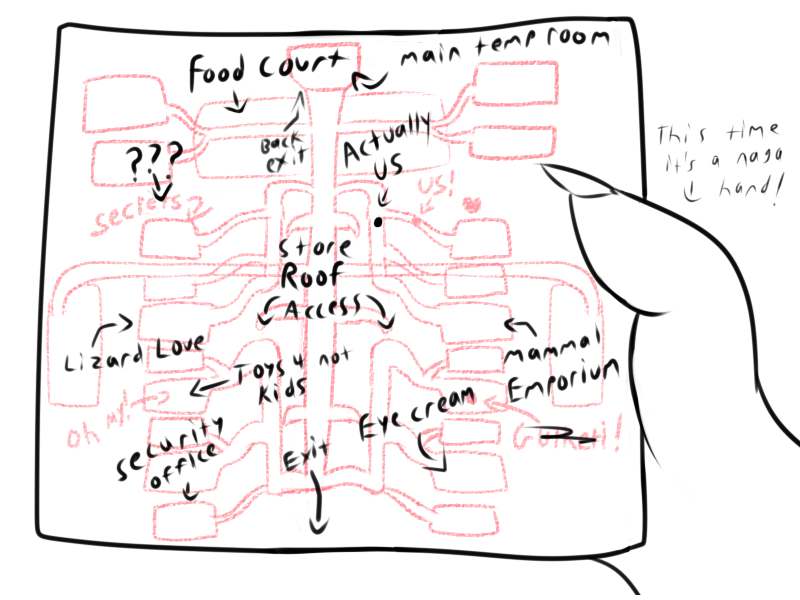 main temp room
Food court
This time
it's a naga
hand!
Back
exit
Actually
US
???
US!
secrets?
Store
Roof
Access
Lizard Love
Mammal
Emporium
Toys 4 not
Kids
oh my!
Eye cream
security
office
Exit